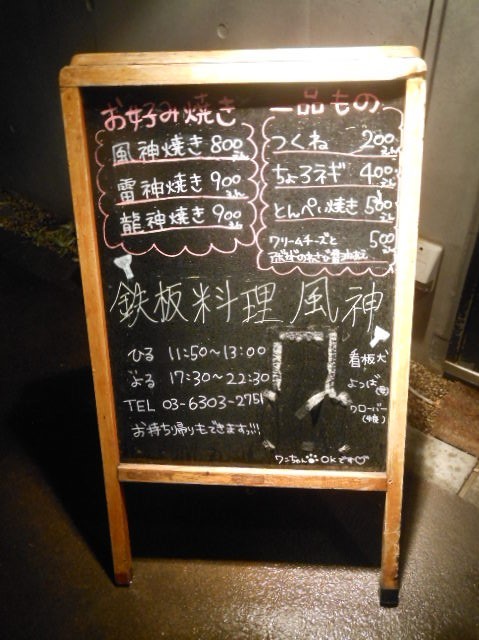 お好み焼き
風神焼き 800えん
雷神焼き 900えん
龍神焼き 900えん
一品もの
つくね 200えん
ちょろネギ 400えん
とんぺい焼き 500えん
クリームチーズと 500えん
アボカドのわさび醤油和え
鉄板料理 風神
ひる 11:50~13:00
よる 17:30~22:30
TEL 03-6303-2751
お持ち帰りもできます!!!
看板犬
よつば
クローバー
ワンちゃんOKです